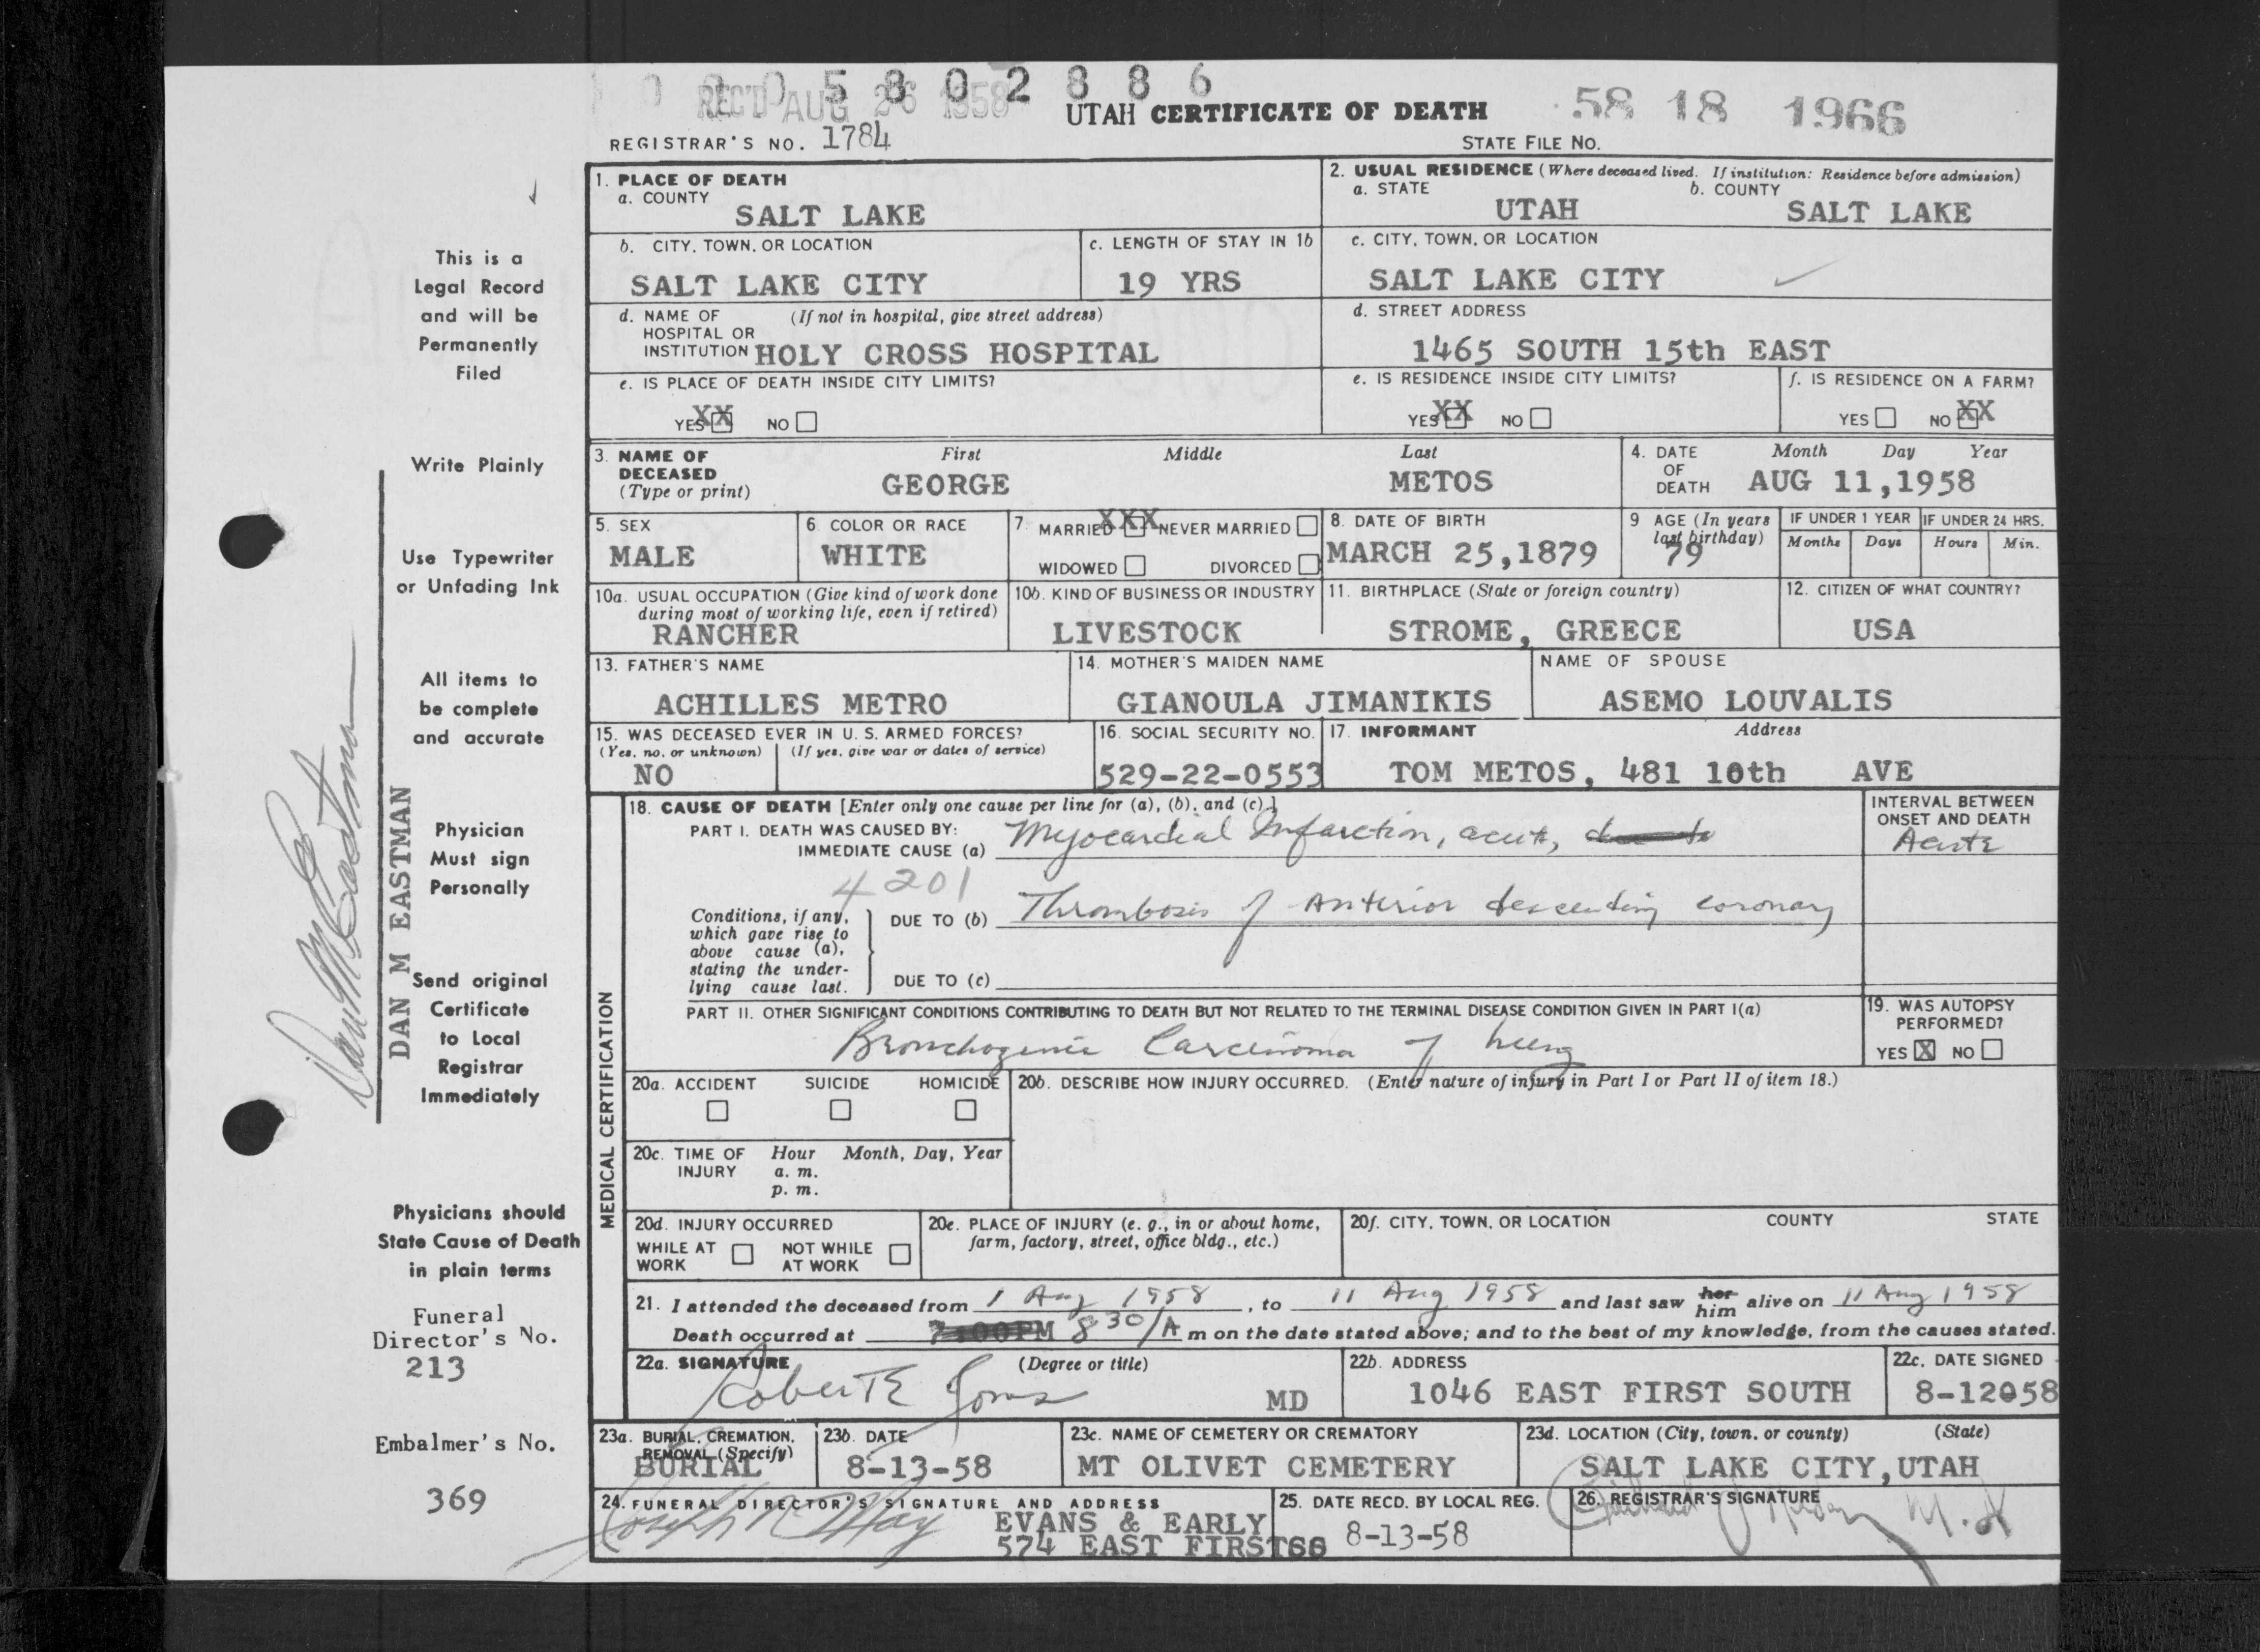 0 0 0 5 8 0 2 8 8 6
REC'D AUG 26 1958
UTAH CERTIFICATE OF DEATH
58 18 1966
REGISTRAR'S NO. 1784
STATE FILE NO.
1. PLACE OF DEATH
a. COUNTY
SALT LAKE
2. USUAL RESIDENCE (Where deceased lived. If institution: Residence before admission)
a. STATE b. COUNTY
UTAH SALT LAKE
b. CITY, TOWN, OR LOCATION
SALT LAKE CITY
c. LENGTH OF STAY IN 1b
19 YRS
c. CITY, TOWN, OR LOCATION
SALT LAKE CITY
d. NAME OF (If not in hospital, give street address)
HOSPITAL OR
INSTITUTION HOLY CROSS HOSPITAL
d. STREET ADDRESS
1465 SOUTH 15th EAST
e. IS PLACE OF DEATH INSIDE CITY LIMITS?
YES XX NO
e. IS RESIDENCE INSIDE CITY LIMITS?
YES XX NO
f. IS RESIDENCE ON A FARM?
YES NO XX
3. NAME OF DECEASED (Type or print)
First Middle Last
GEORGE METOS
4. DATE OF DEATH
Month Day Year
AUG 11,1958
5. SEX
MALE
6. COLOR OR RACE
WHITE
7. MARRIED XXX NEVER MARRIED
WIDOWED DIVORCED
8. DATE OF BIRTH
MARCH 25,1879
9 AGE (In years
last birthday)
79
IF UNDER 1 YEAR IF UNDER 24 HRS.
Months Days Hours Min.
10a. USUAL OCCUPATION (Give kind of work done
during most of working life, even if retired)
RANCHER
10b. KIND OF BUSINESS OR INDUSTRY
LIVESTOCK
11. BIRTHPLACE (State or foreign country)
STROME, GREECE
12. CITIZEN OF WHAT COUNTRY?
USA
13. FATHER'S NAME
ACHILLES METRO
14. MOTHER'S MAIDEN NAME
GIANOULA JIMANIKIS
NAME OF SPOUSE
ASEMO LOUVALIS
15. WAS DECEASED EVER IN U. S. ARMED FORCES?
(Yes, no, or unknown) (If yes, give war or dates of service)
NO
16. SOCIAL SECURITY NO.
529-22-0553
17. INFORMANT Address
TOM METOS, 481 10th AVE
MEDICAL CERTIFICATION
18. CAUSE OF DEATH [Enter only one cause per line for (a), (b), and (c).]
PART I. DEATH WAS CAUSED BY:
IMMEDIATE CAUSE (a) Myocardial Infarction, acute,
INTERVAL BETWEEN
ONSET AND DEATH
Acute
4201
Conditions, if any,
which gave rise to
above cause (a),
stating the under-
lying cause last.
DUE TO (b) Thrombosis of Anterior descending coronary
DUE TO (c)
PART II. OTHER SIGNIFICANT CONDITIONS CONTRIBUTING TO DEATH BUT NOT RELATED TO THE TERMINAL DISEASE CONDITION GIVEN IN PART I(a)
Bronchogenic Carcinoma of lung
19. WAS AUTOPSY
PERFORMED?
YES X NO
20a. ACCIDENT SUICIDE HOMICIDE
20b. DESCRIBE HOW INJURY OCCURRED. (Enter nature of injury in Part I or Part II of item 18.)
20c. TIME OF INJURY
Hour Month, Day, Year
a. m.
p. m.
20d. INJURY OCCURRED
WHILE AT WORK NOT WHILE AT WORK
20e. PLACE OF INJURY (e. g., in or about home,
farm, factory, street, office bldg., etc.)
20f. CITY, TOWN, OR LOCATION COUNTY STATE
21. I attended the deceased from 1 Aug 1958, to 11 Aug 1958 and last saw her him alive on 11 Aug 1958
Death occurred at 7:00PM 8 30/A m on the date stated above; and to the best of my knowledge, from the causes stated.
22a. SIGNATURE (Degree or title)
Robert E Jones MD
22b. ADDRESS
1046 EAST FIRST SOUTH
22c. DATE SIGNED
8-12058
23a. BURIAL, CREMATION,
REMOVAL (Specify)
BURIAL
23b. DATE
8-13-58
23c. NAME OF CEMETERY OR CREMATORY
MT OLIVET CEMETERY
23d. LOCATION (City, town, or county) (State)
SALT LAKE CITY, UTAH
24. FUNERAL DIRECTOR'S SIGNATURE AND ADDRESS
EVANS & EARLY
574 EAST FIRST
25. DATE RECD. BY LOCAL REG.
8-13-58
26. REGISTRAR'S SIGNATURE
This is a
Legal Record
and will be
Permanently
Filed
Write Plainly
Use Typewriter
or Unfading Ink
All items to
be complete
and accurate
Physician
Must sign
Personally
Send original
Certificate
to Local
Registrar
Immediately
Physicians should
State Cause of Death
in plain terms
Funeral
Director's No.
213
Embalmer's No.
369
Dan M Eastman
DAN M EASTMAN